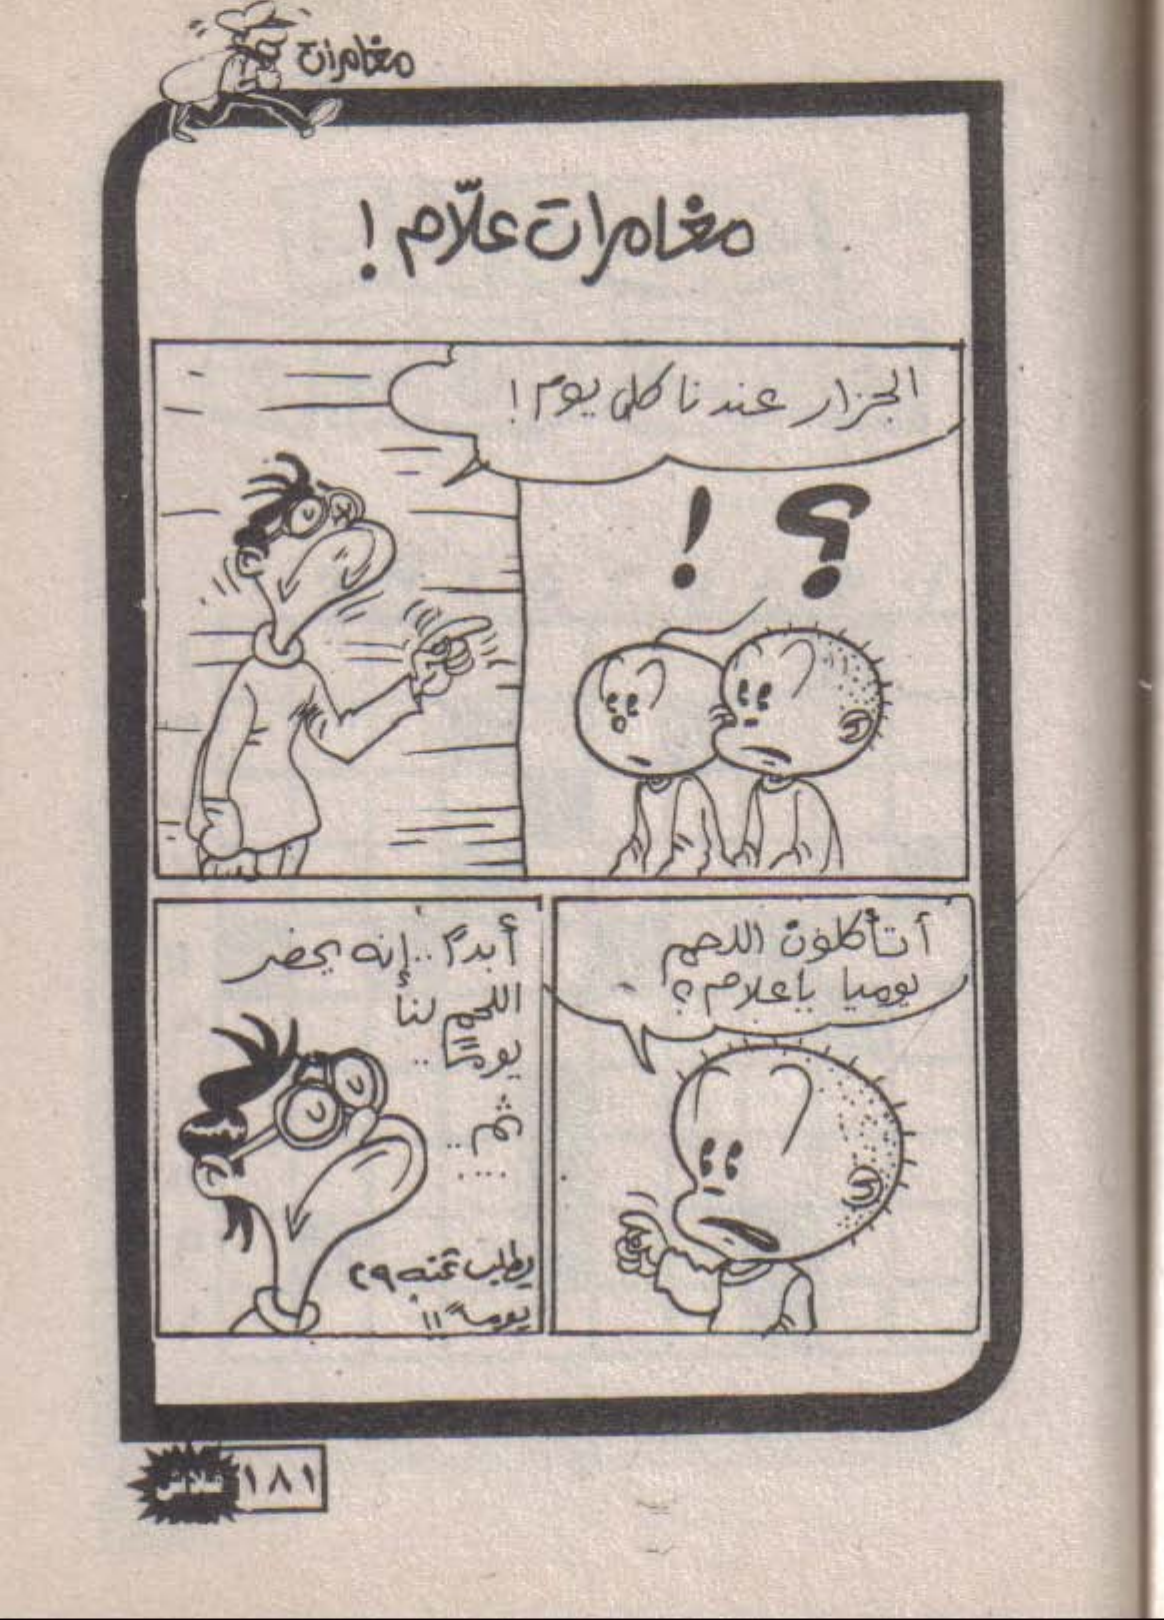 مغامرات
مغامرات علّام !
الجزار عندنا كل يوم !
؟ !
أتأكلون اللحم
يوميا ياعلام ؟
أبدًا .. إنه يحضر
اللحم لنا
يومًا ..
ثم ..
....
يطلب ثمنه ٢٩
يوماً !!
١٨١ فلاش